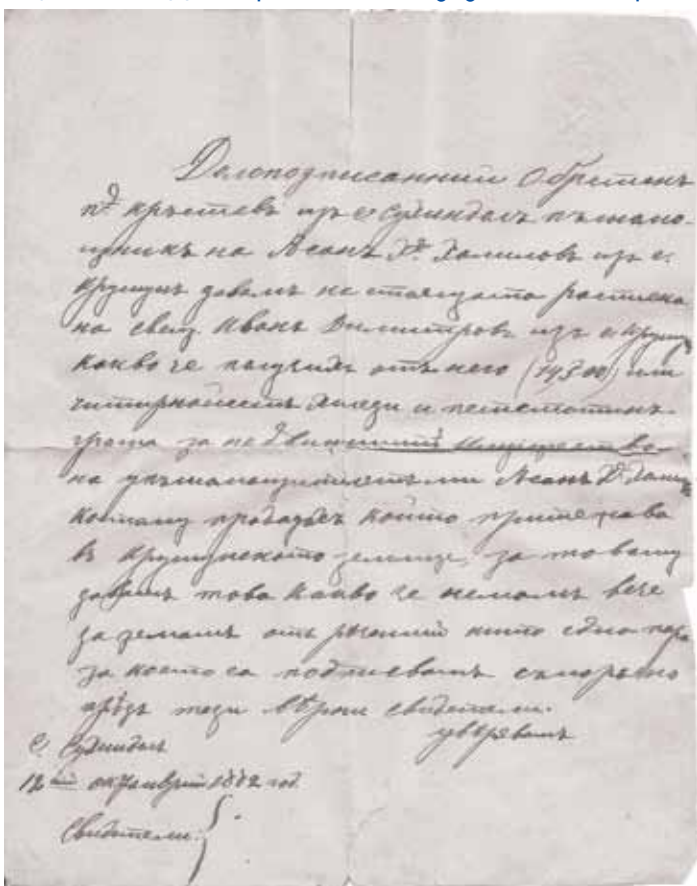 Долоподписанний Обретенъ
п. Кръстевъ изъ с. Сухиндолъ пълномо-
щникъ на Асанъ Х. Халиловъ изъ с.
Крушунъ давамъ настоящата расписка
на Иванъ Димитровъ изъ с. Крушунъ
какво че получихъ отъ него (14500) или
читиринайсетъ хиляди и петстотинъ
гроша за недвижимий имущество
на упълномощительтъ ми Асанъ Х. Халил
комуто продадохъ който притежава
въ Крушунското землище, за това му
давамъ това какво че немамъ вече
за земамъ отъ ни то една пара
за което са подписвамъ саморъчно
прѣдъ тези вѣрни свидетели.
увѣрявамъ
с. Сухиндолъ
12 ий октомврий 1882 год.
Свидетели: